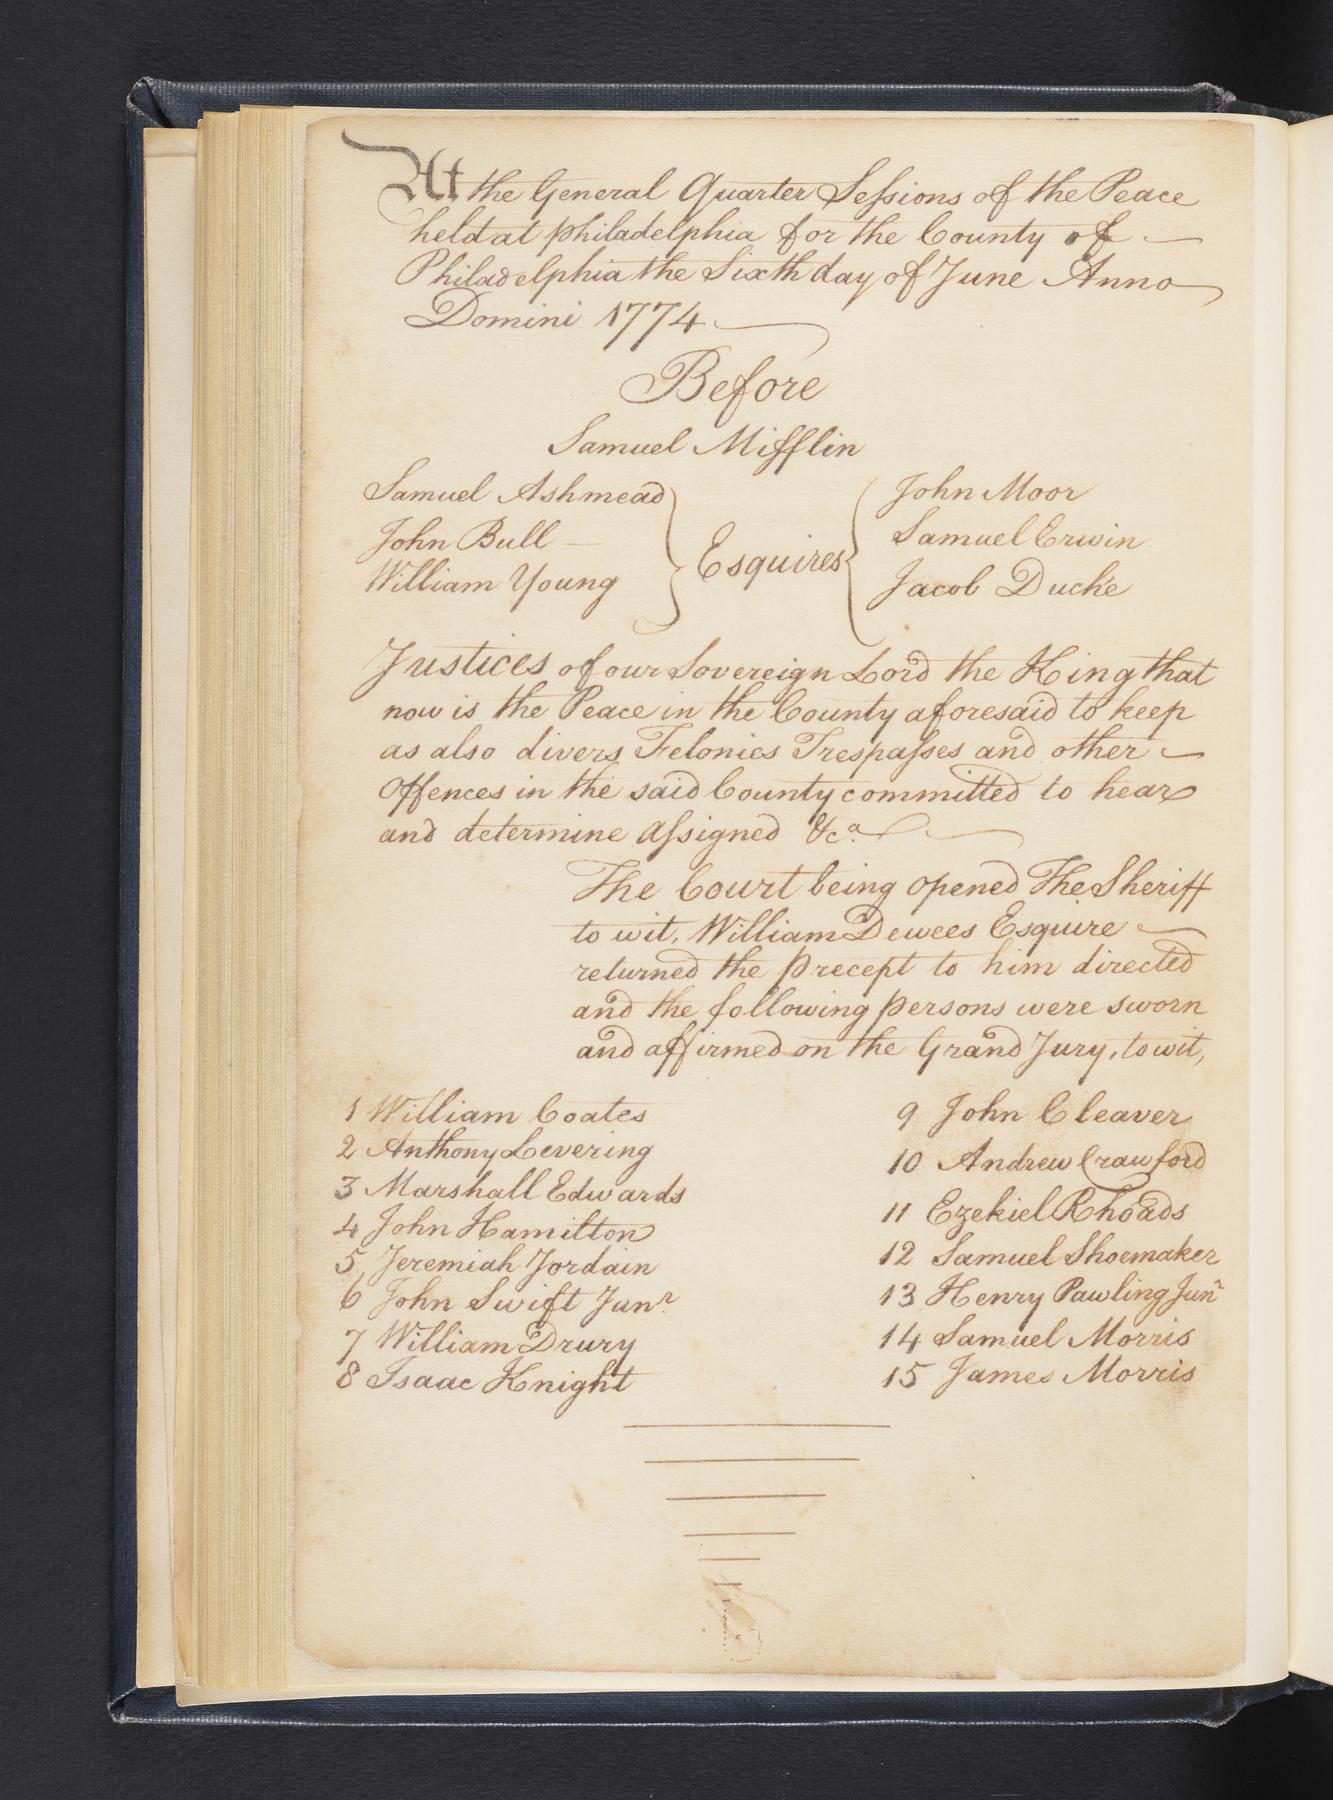 At the General Quarter Sessions of the Peace
held at philadelphia for the County of
Philadelphia the Sixth day of June Anno
Domini 1774
Before
Samuel Mifflin
Samuel Ashmead
John Bull
William Young
Esquires
John Moor
Samuel Erwin
Jacob Duché
Justices of our Sovereign Lord the King that
now is the Peace in the County aforesaid to keep
as also divers Felonies Trespasses and other
Offences in the said County committed to hear
and determine assigned &c.a
The Court being opened The Sheriff
to wit, William Dewees Esquire
returned the precept to him directed
and the following persons were sworn
and affirmed on the Grand Jury, to wit,
1 William Coates
2 Anthony Levering
3 Marshall Edwards
4 John Hamilton
5 Jeremiah Jordain
6 John Swift Junr
7 William Drury
8 Isaac Knight
9 John Cleaver
10 Andrew Crawford
11 Ezekiel Rhoads
12 Samuel Shoemaker
13 Henry Pawling Junr
14 Samuel Morris
15 James Morris